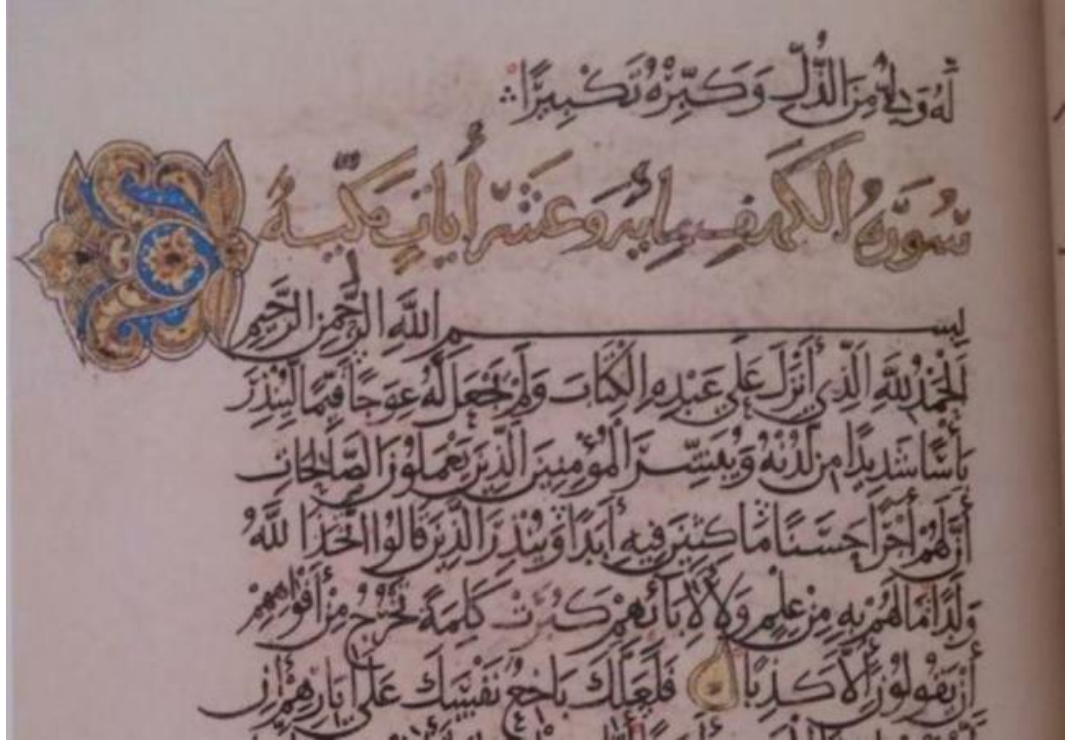 لَهُ وَلِيٌّ مِنَ الذُّلِّ وَكَبِّرْهُ تَكْبِيرًا
سُورَةُ الْكَهْفِ مِايَة وَعَشْر أيات مَكِّيَّة
بِسْمِ اللَّهِ الرَّحْمٰنِ الرَّحِيمِ
اَلْحَمْدُ لِلَّهِ الَّذِي أَنْزَلَ عَلَى عَبْدِهِ الْكِتَابَ وَلَمْ يَجْعَلْ لَهُ عِوَجًا قَيِّمًا لِيُنْذِرَ
بَأْسًا شَدِيدًا مِنْ لَدُنْهُ وَيُبَشِّرَ الْمُؤْمِنِينَ الَّذِينَ يَعْمَلُونَ الصَّالِحَاتِ
أَنَّ لَهُمْ أَجْرًا حَسَنًا مَاكِثِينَ فِيهِ أَبَدًا وَيُنْذِرَ الَّذِينَ قَالُوا اتَّخَذَ اللَّهُ
وَلَدًا مَا لَهُمْ بِهِ مِنْ عِلْمٍ وَلَا لِآبَائِهِمْ كَبُرَتْ كَلِمَةً تَخْرُجُ مِنْ أَفْوَاهِهِمْ
أَنْ يَقُولُونَ أِلَّا كَذِبًا فَلَعَلَّكَ بَاخِعٌ نَفْسَكَ عَلَى آثَارِهِمْ أِنْ